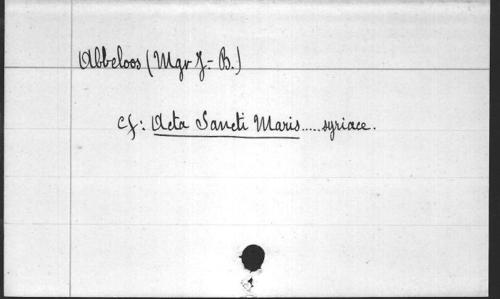 Abbeloos (Mgr J.-B.)
cf: Acta Sancti Maris.....syriace.